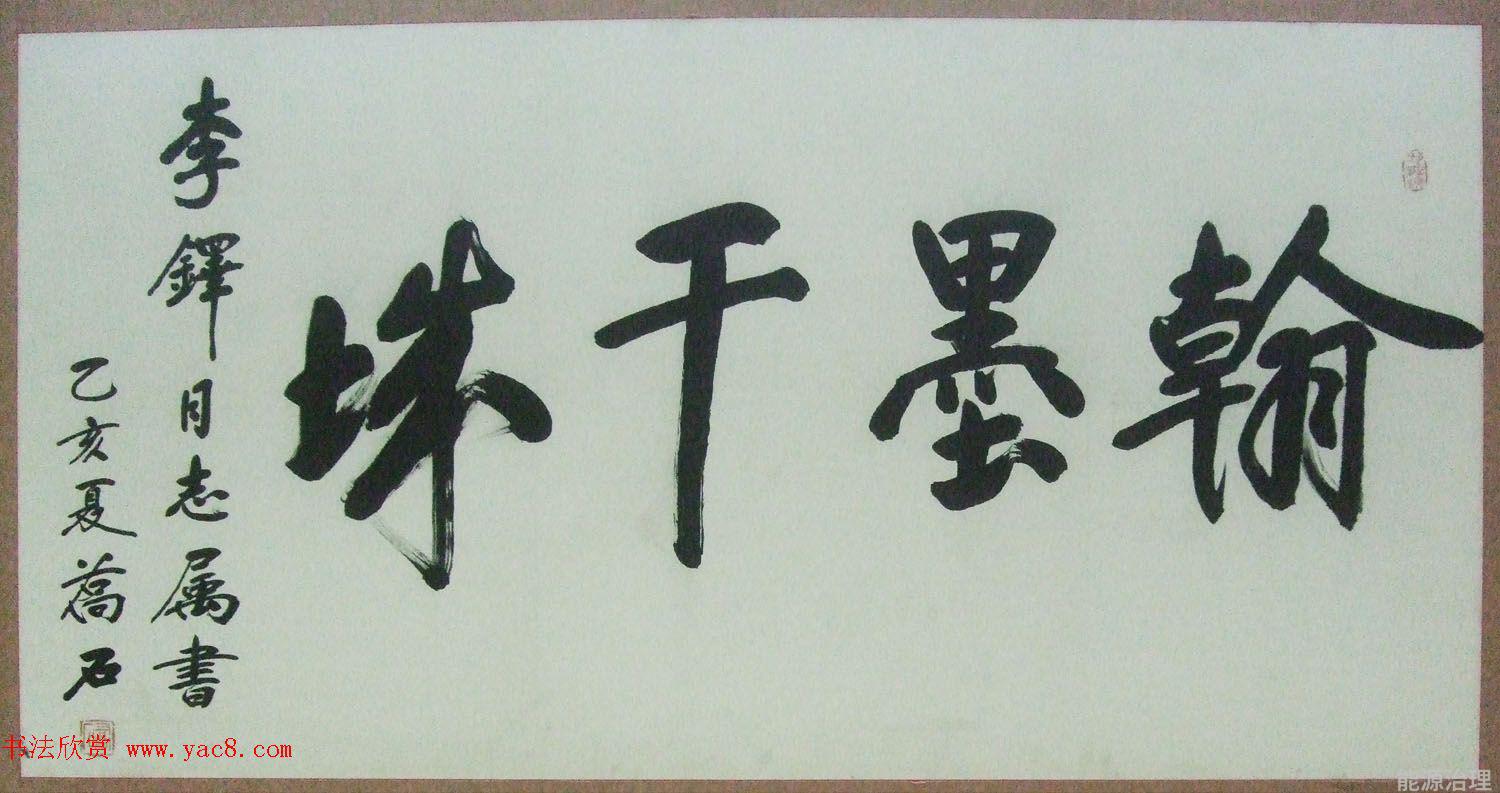 翰墨千珠
李鐸同志属書
乙亥夏喬石
书法欣赏 www.yac8.com
能源治理